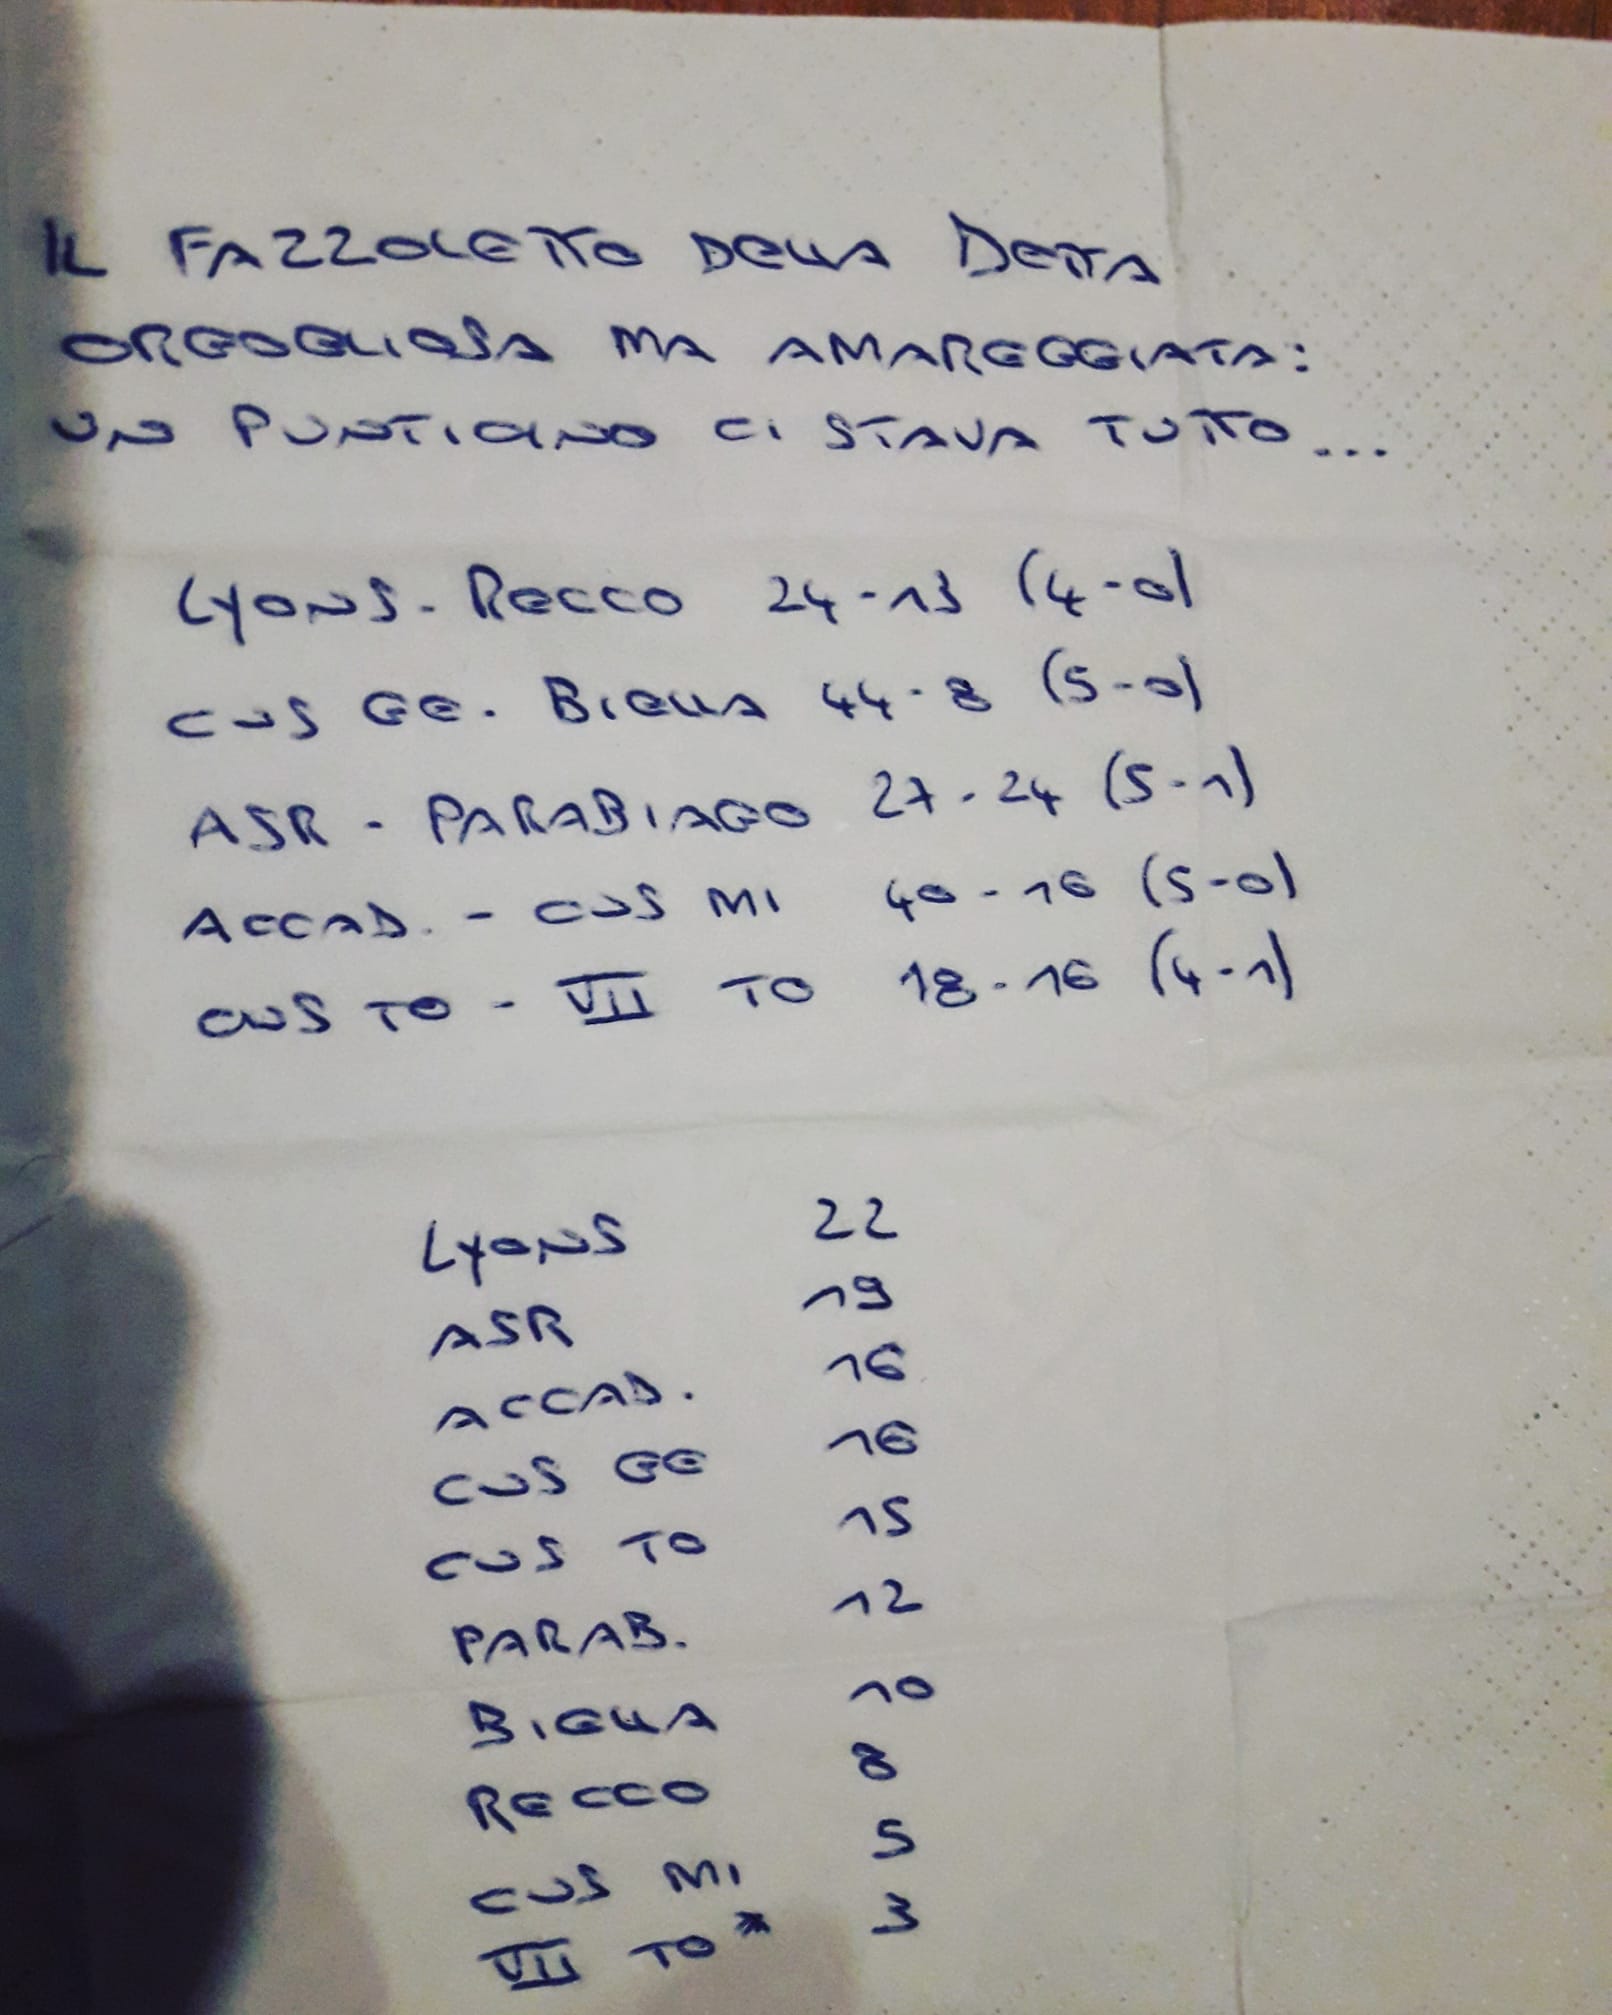 IL FAZZOLETTO DELLA DETTA
ORGOGLIOSA MA AMAREGGIATA:
UN PUNTICINO CI STAVA TUTTO...
LYONS - RECCO 24-13 (4-0)
CUS GE - BIELLA 44-8 (5-0)
ASR - PARABIAGO 27-24 (5-1)
ACCAD. - CUS MI 40-16 (5-0)
CUS TO - VII TO 18-16 (4-1)
LYONS 22
ASR 19
ACCAD. 16
CUS GE 16
CUS TO 15
PARAB. 12
BIELLA 10
RECCO 8
CUS MI 5
VII TO* 3